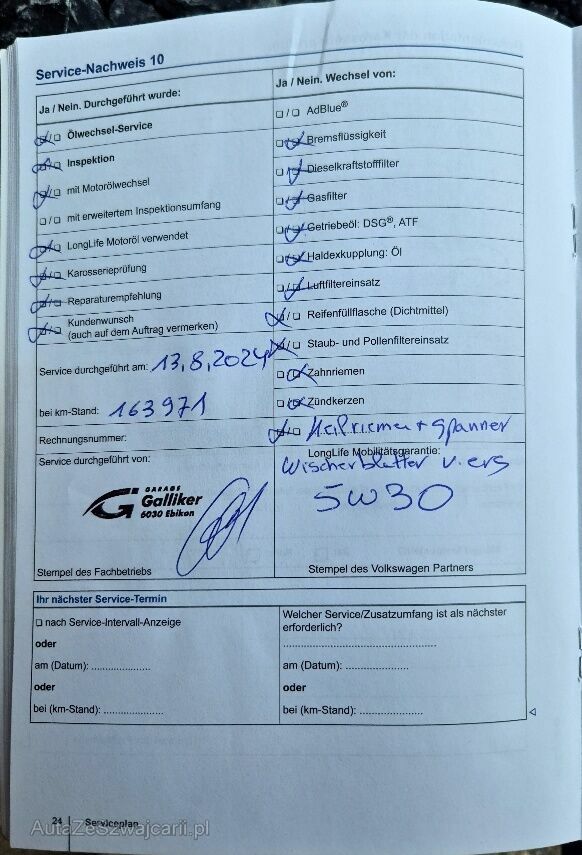 Service-Nachweis 10
Ja / Nein. Durchgeführt wurde:
Ja / Nein. Wechsel von:
Ölwechsel-Service
Inspektion
mit Motorölwechsel
mit erweitertem Inspektionsumfang
LongLife Motoröl verwendet
Karosserieprüfung
Reparaturempfehlung
Kundenwunsch
(auch auf dem Auftrag vermerken)
Service durchgeführt am: 13,8,2024
bei km-Stand: 163971
Rechnungsnummer:
Service durchgeführt von:
GARAGE
Galliker
6030 Ebikon
Stempel des Fachbetriebs
AdBlue®
Bremsflüssigkeit
Dieselkraftstofffilter
Gasfilter
Getriebeöl: DSG®, ATF
Haldexkupplung: Öl
Luftfiltereinsatz
Reifenfüllflasche (Dichtmittel)
Staub- und Pollenfiltereinsatz
Zahnriemen
Zündkerzen
Keilriemen + Spanner
LongLife Mobilitätsgarantie:
Wischerblätter v. ers
5W30
Stempel des Volkswagen Partners
Ihr nächster Service-Termin
nach Service-Intervall-Anzeige
oder
am (Datum): ....................
oder
bei (km-Stand): ....................
Welcher Service/Zusatzumfang ist als nächster
erforderlich?
am (Datum): ....................
oder
bei (km-Stand): ....................
24 Serviceplan
AutaZeSzwajcarii.pl